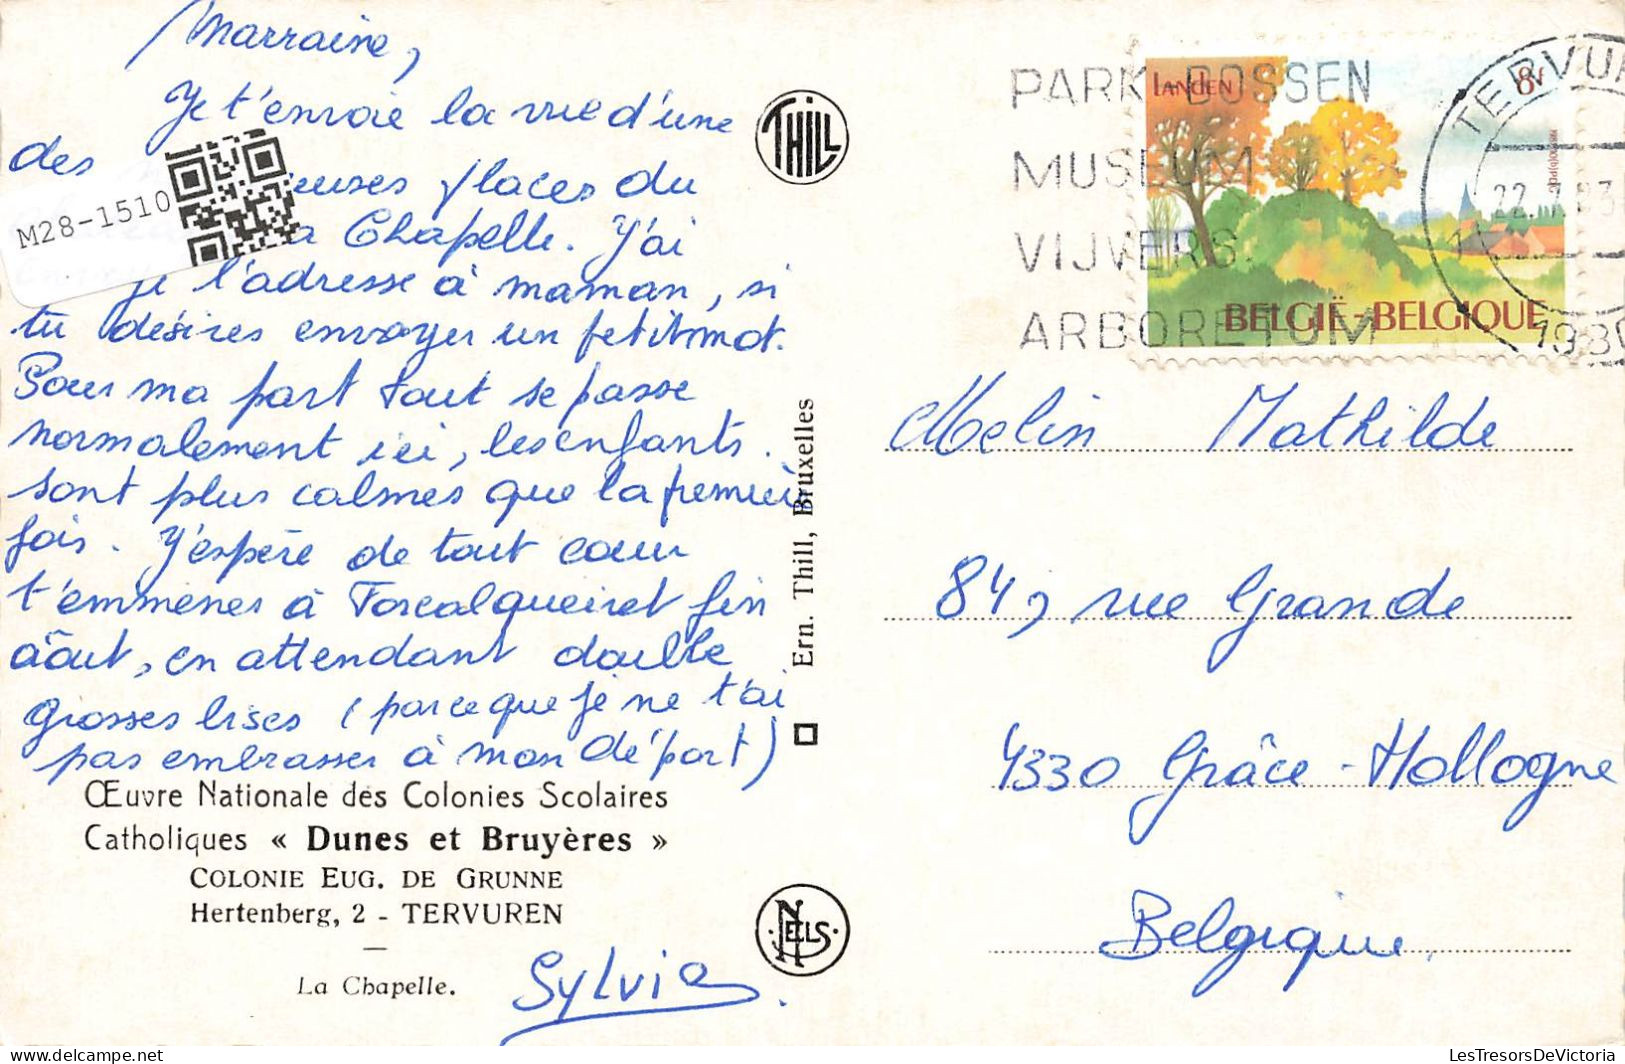 Marraine,
Je t'envoie la vue d'une
des euses places du
a Chapelle. J'ai
l'adresse à maman, si
tu désires envoyer un petit mot.
Pour ma part tout se passe
normalement ici, les enfants
sont plus calmes que la premièr
fois. J'espère de tout cœur
t'emmener à Forcalqueiret fin
août, en attendant double
grosses bises (parce que je ne t'ai
pas embrasser à mon départ)
Œuvre Nationale des Colonies Scolaires
Catholiques « Dunes et Bruyères »
COLONIE EUG. DE GRUNNE
Hertenberg, 2 - TERVUREN
La Chapelle.
Sylvia
M28-1510
THILL
Ern. Thill, Bruxelles
NELS
PARK-BOSSEN
MUSEUM
VIJVERS.
ARBORETUM
LANDEN
8F
BELGIË-BELGIQUE
TERVUR
22.7.83
1980
Melin Mathilde
84, rue Grande
4330 Grâce-Hollogne
Belgique.
LesTresorsDeVictoria